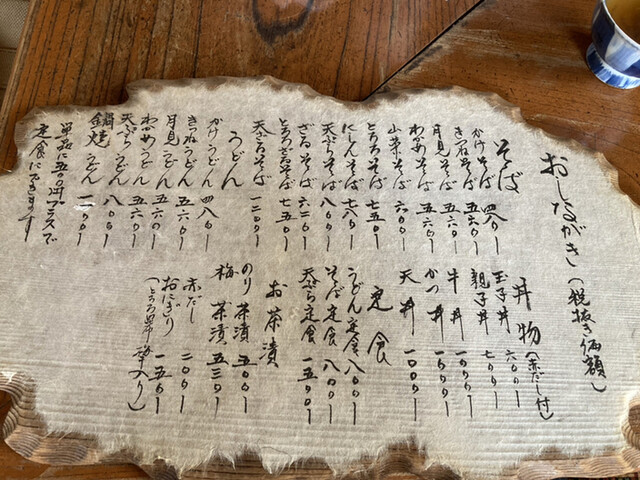 おしながき（税抜き価額）
そば
かけそば 四八〇ー
きつねそば 五六〇ー
月見そば 五六〇ー
わかめそば 五六〇ー
山菜そば 六〇〇ー
とろろそば 七五〇ー
にしんそば 七八〇ー
天ぷらそば 八〇〇ー
ざるそば 六二〇ー
とろろざるそば 七五〇ー
天ざるそば 一二〇〇ー
うどん
かけうどん 四八〇ー
きつねうどん 五六〇ー
月見うどん 五六〇ー
わかめうどん 五六〇ー
天ぷらうどん 八〇〇ー
鍋焼うどん 一一〇〇ー
単品に五〇〇円プラスで
定食にできます
丼物（赤だし付）
玉子丼 六〇〇ー
親子丼 七〇〇ー
牛丼 一〇〇〇ー
かつ丼 一〇〇〇ー
天丼 一〇〇〇ー
定食
うどん定食 八〇〇ー
そば定食 八〇〇ー
天ぷら定食 一五〇〇ー
お茶漬
のり茶漬 五〇〇ー
梅茶漬 五三〇ー
赤だし 二〇〇ー
おにぎり 一五〇ー
（とろろ昆布入り）